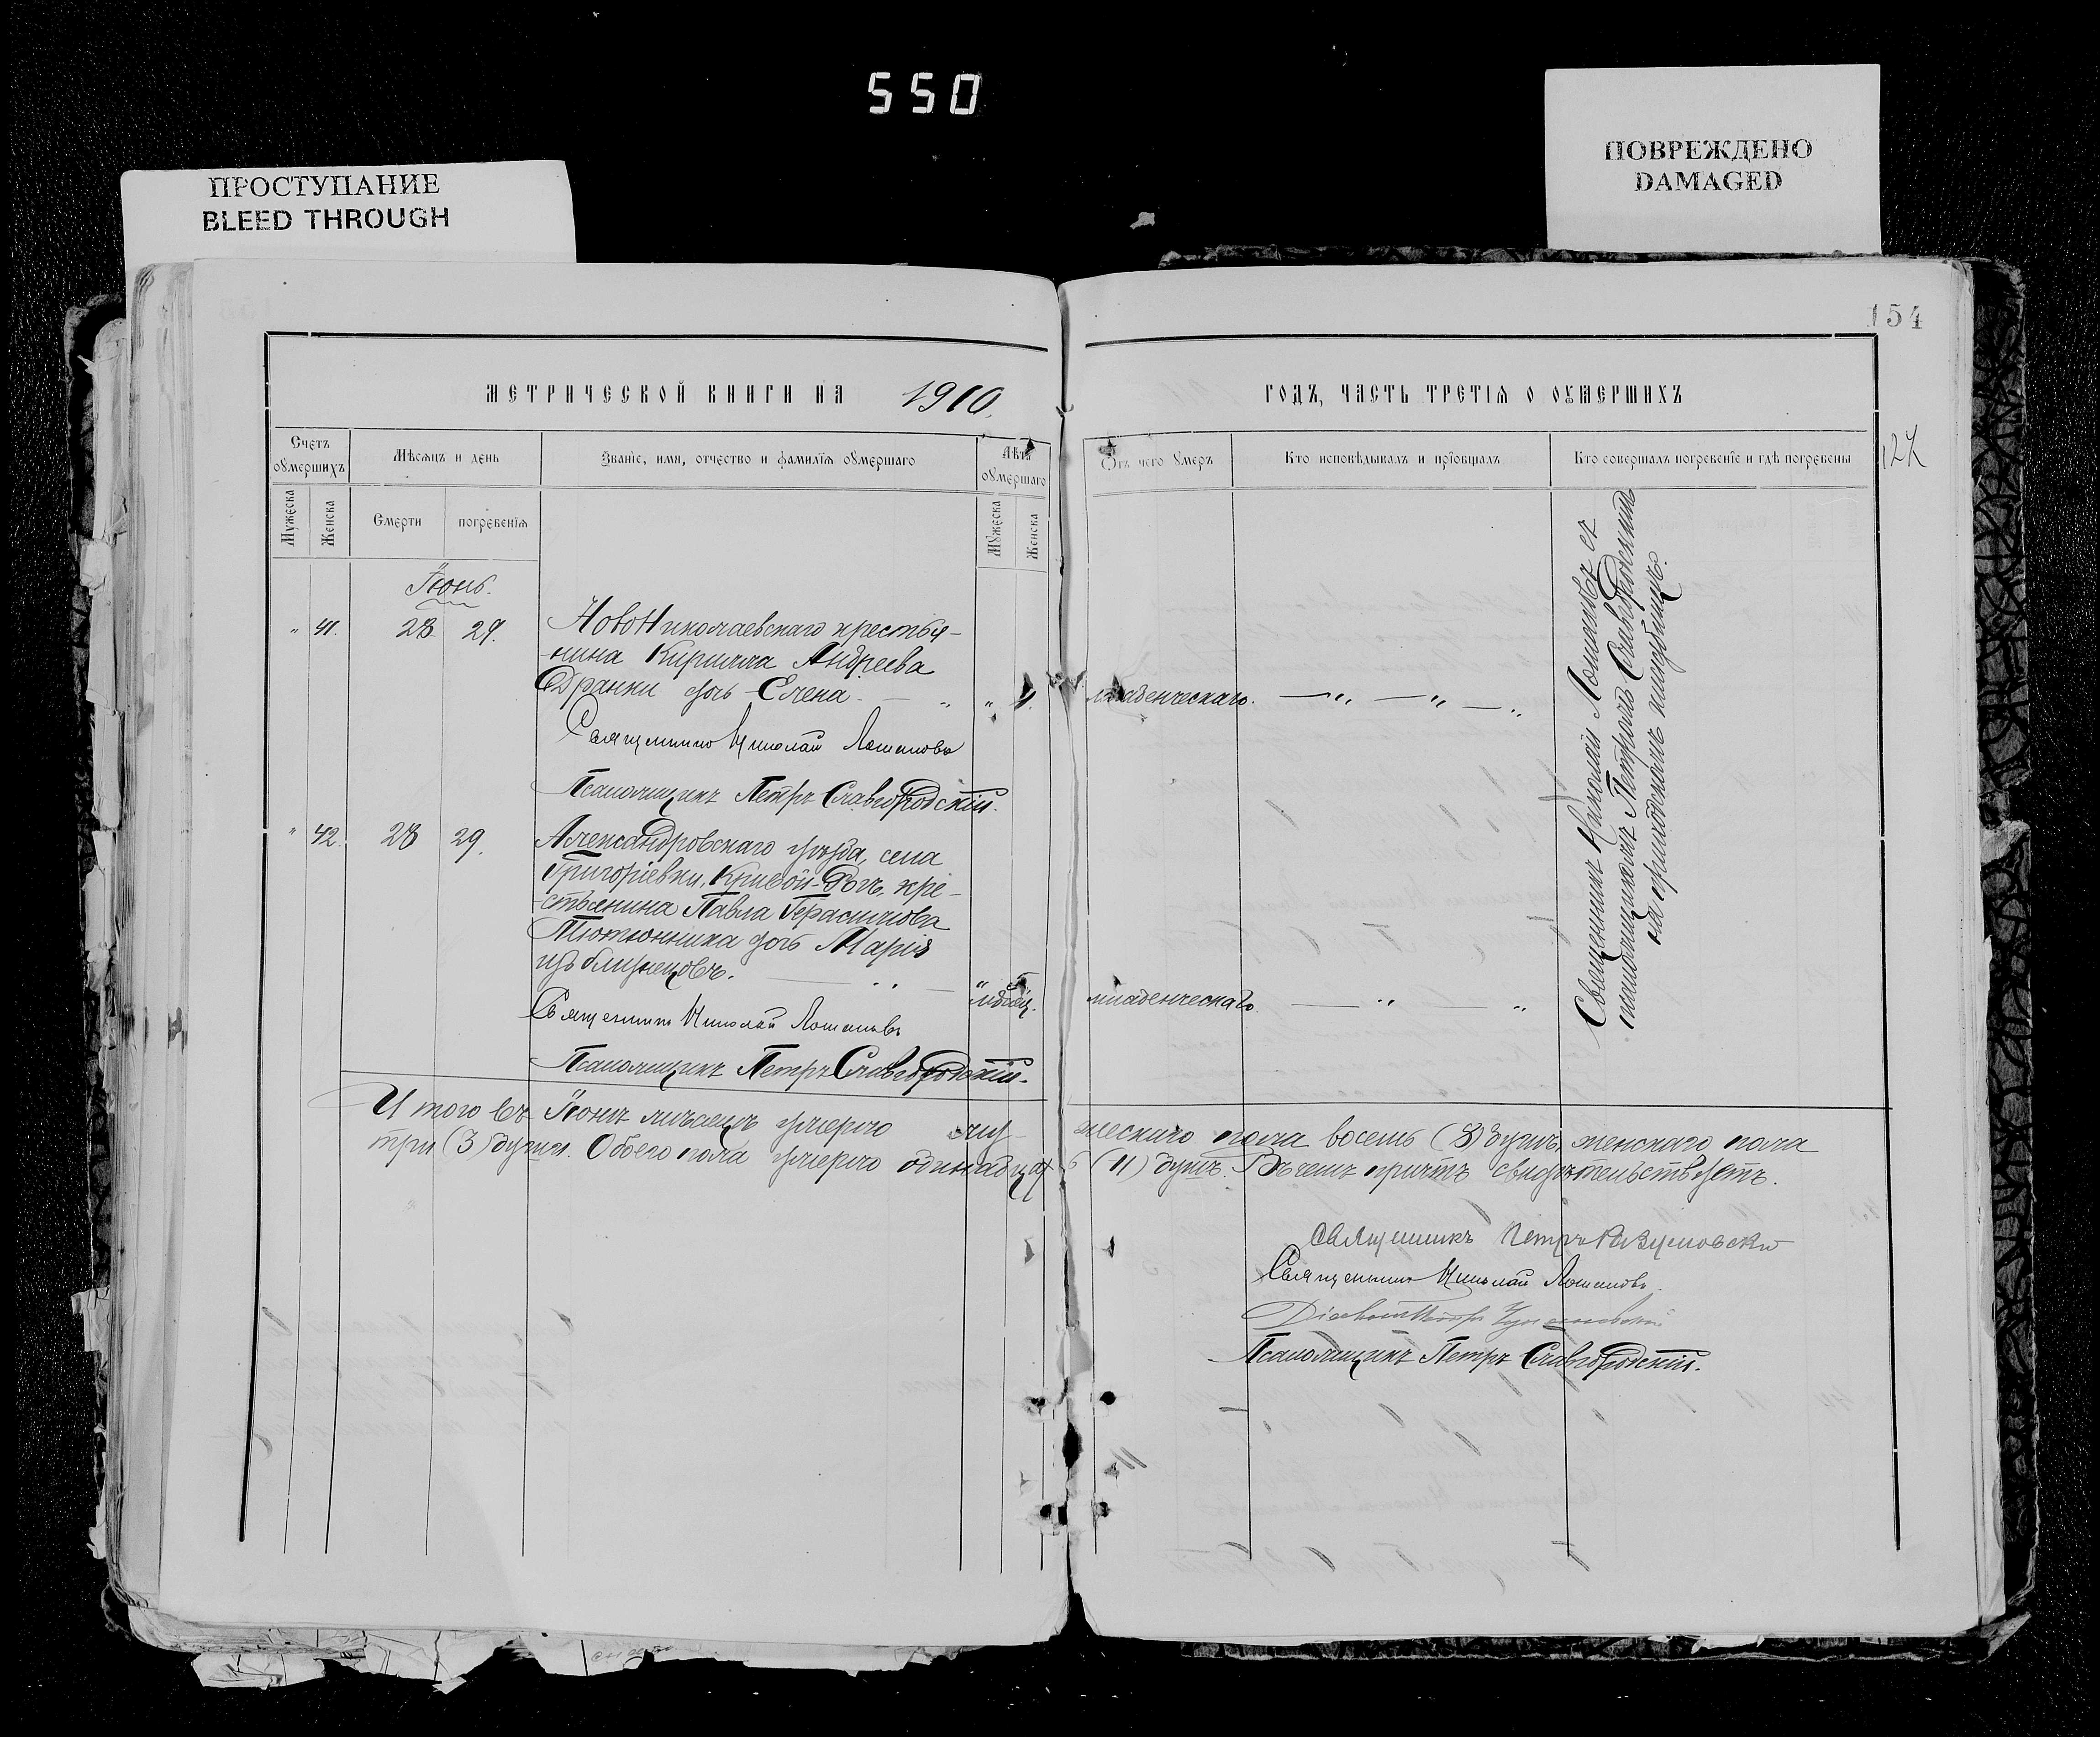 550
ПРОСТУПАНИЕ
BLEED THROUGH
ПОВРЕЖДЕНО
DAMAGED
154
МЕТРИЧЕСКОЙ КНИГИ НА 1910
ГОДЪ, ЧАСТЬ ТРЕТІЯ О ОУМЕРШИХЪ
127
Счетъ оумершихъ
Мѣсяцъ и день
Званіе, имя, отчество и фамилія оумершаго
Лѣта оумершаго
Отъ чего умеръ
Кто исповѣдывалъ и пріобщалъ
Кто совершалъ погребеніе и гдѣ погребены
Мужеска
Женска
Смерти
погребенія
Мужеска
Женска
Іюнь.
" 41. 28 29. Новониколаевскаго крестья-
нина Кирилла Андреева
Дранки дочь Елена - " " младенческаго. — " — " — "
Священникъ Николай Лошаковъ
Псаломщикъ Петръ Славгородскій.
" 42. 28 29. Александровскаго уѣзда, села
Григоріевки, Кривой-Рогъ, кре-
стьянина Павла Герасимова
Тютюнника дочь Марія
изъ близнецовъ. — " — " 5
мѣсяц. младенческаго. — " — "
Священникъ Николай Лошаковъ
Псаломщикъ Петръ Славгородскій.
Священникъ Николай Лошаковъ съ
псаломщикомъ Петромъ Славгородскимъ
на приходскомъ кладбищѣ.
Итого въ Іюнѣ мѣсяцѣ умерло муж-
ескаго пола восемь (8) душъ, женскаго пола
три (3) души. Обоего пола умерло одиннадцат
ь (11) душъ. Въ чемъ причтъ свидѣтельствуетъ.
Священникъ Петръ Разумовскій
Священникъ Николай Лошаковъ.
Діаконъ
Псаломщикъ Петръ Славгородскій.